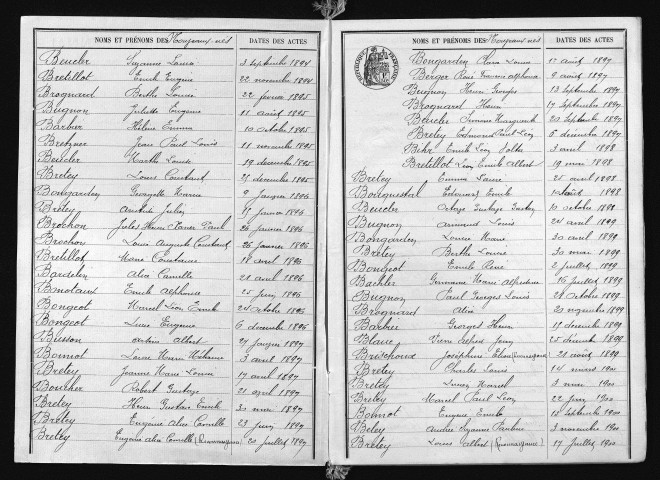 NOMS ET PRÉNOMS DES Nouveaux-nés DATES DES ACTES
Beucler Suzanne Louise 3 septembre 1894
Bretillot Emile Eugène 22 novembre 1894
Brognard Berthe Louise 22 février 1895
Bugnon Juliette Eugénie 11 août 1895
Barbier Hélène Emma 10 octobre 1895
Bretzner Jean Paul Louis 11 novembre 1895
Beucler Marthe Louise 19 décembre 1895
Bretey Louis Constant 25 décembre 1895
Bongarden Georgette Marie 9 janvier 1896
Bretey Juliey 15 janvier 1896
Brochon Jules Henri Xavier Paul 26 janvier 1896
Brochon Louis Auguste Constant 26 février 1896
Bretillot Marie Constance 18 avril 1896
Bardelin Alix Camille 21 avril 1896
Bonotaux Emile Alphonse 25 juin 1896
Bongeot Marcel Léon Emile 24 octobre 1896
Bongeot Lucie Eugénie 6 décembre 1896
Buisson Albert 27 janvier 1897
Bonnot Louise Marie 3 avril 1897
Bretey Jeanne Marie Louise 17 avril 1897
Boucher Robert Gustave 21 avril 1897
Bretey Henri Gustave Emile 30 mai 1897
Bretey Eugénie Alix Camille 23 juin 1897
Bretey Eugénie Alix Camille (Reconnaissance) 20 juillet 1897
NOMS ET PRÉNOMS DES Nouveaux-nés DATES DES ACTES
RÉPUBLIQUE FRANÇAISE
Bongarden Louise 1er août 1897
Berger René François Alphonse 9 août 1897
Bugnon Henri Georges 13 septembre 1897
Brognard Henri 17 septembre 1897
Beucler Simone Marguerite 20 septembre 1897
Bretey Edmond Paul Léon 6 décembre 1897
Bihr Emile Léon 3 avril 1898
Bretillot Léon Emile Albert 19 mai 1898
Bretey Emma Laure 25 avril 1898
Bouquestal Edouard Emile août 1898
Beucler Gustave Gaston 10 octobre 1898
Bugnon Armand Louis 24 avril 1899
Bongarden Louise Marie 30 avril 1899
Bretey Berthe Louise 30 mai 1899
Bongeot Emile René 2 juillet 1899
Bachler Germaine Marie Alphonsine 16 juillet 1899
Bugnon Paul Georges Louis 21 octobre 1899
Brognard Alix 20 novembre 1899
Barbier Georges Henri 15 décembre 1899
Blaire Pierre Alfred 25 décembre 1899
Brischoux Joséphine Elise (Reconnaissance) 21 août 1899
Bretey Charles Louis 14 mars 1900
Bretey Lucien Marcel 3 mai 1900
Bretey Marcel Paul Léon 22 juin 1900
Bonnot Eugène Emile 18 septembre 1900
Beley Andrée Suzanne Pauline 3 novembre 1900
Bretey Louis Albert (Reconnaissance) 17 juillet 1900